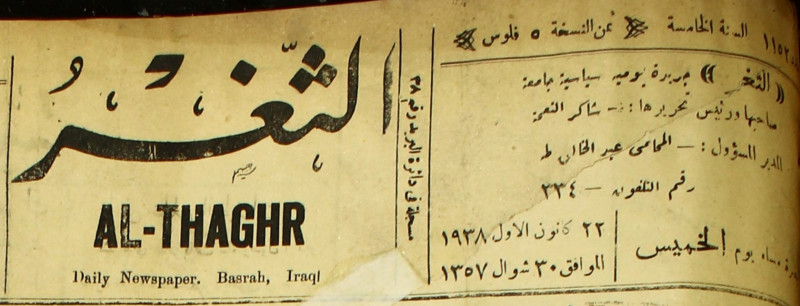 الثغر
AL-THAGHR
Daily Newspaper. Basrah, Iraq
مسجلة في دائرة البريد رقم ٣٨
١١٥٢ السنة الخامسة ثمن النسخة ٥ فلوس
((الثغر)) جريدة يومية سياسية جامعة
صاحبها ورئيس تحريرها : – شاكر النعمة
المدير المسؤول : – المحامي عبد
رقم التلفون – ٣٣٤
مساء يوم الخميس
٢٢ كانون الاول ١٩٣٨
الموافق ٣٠ شوال ١٣٥٧